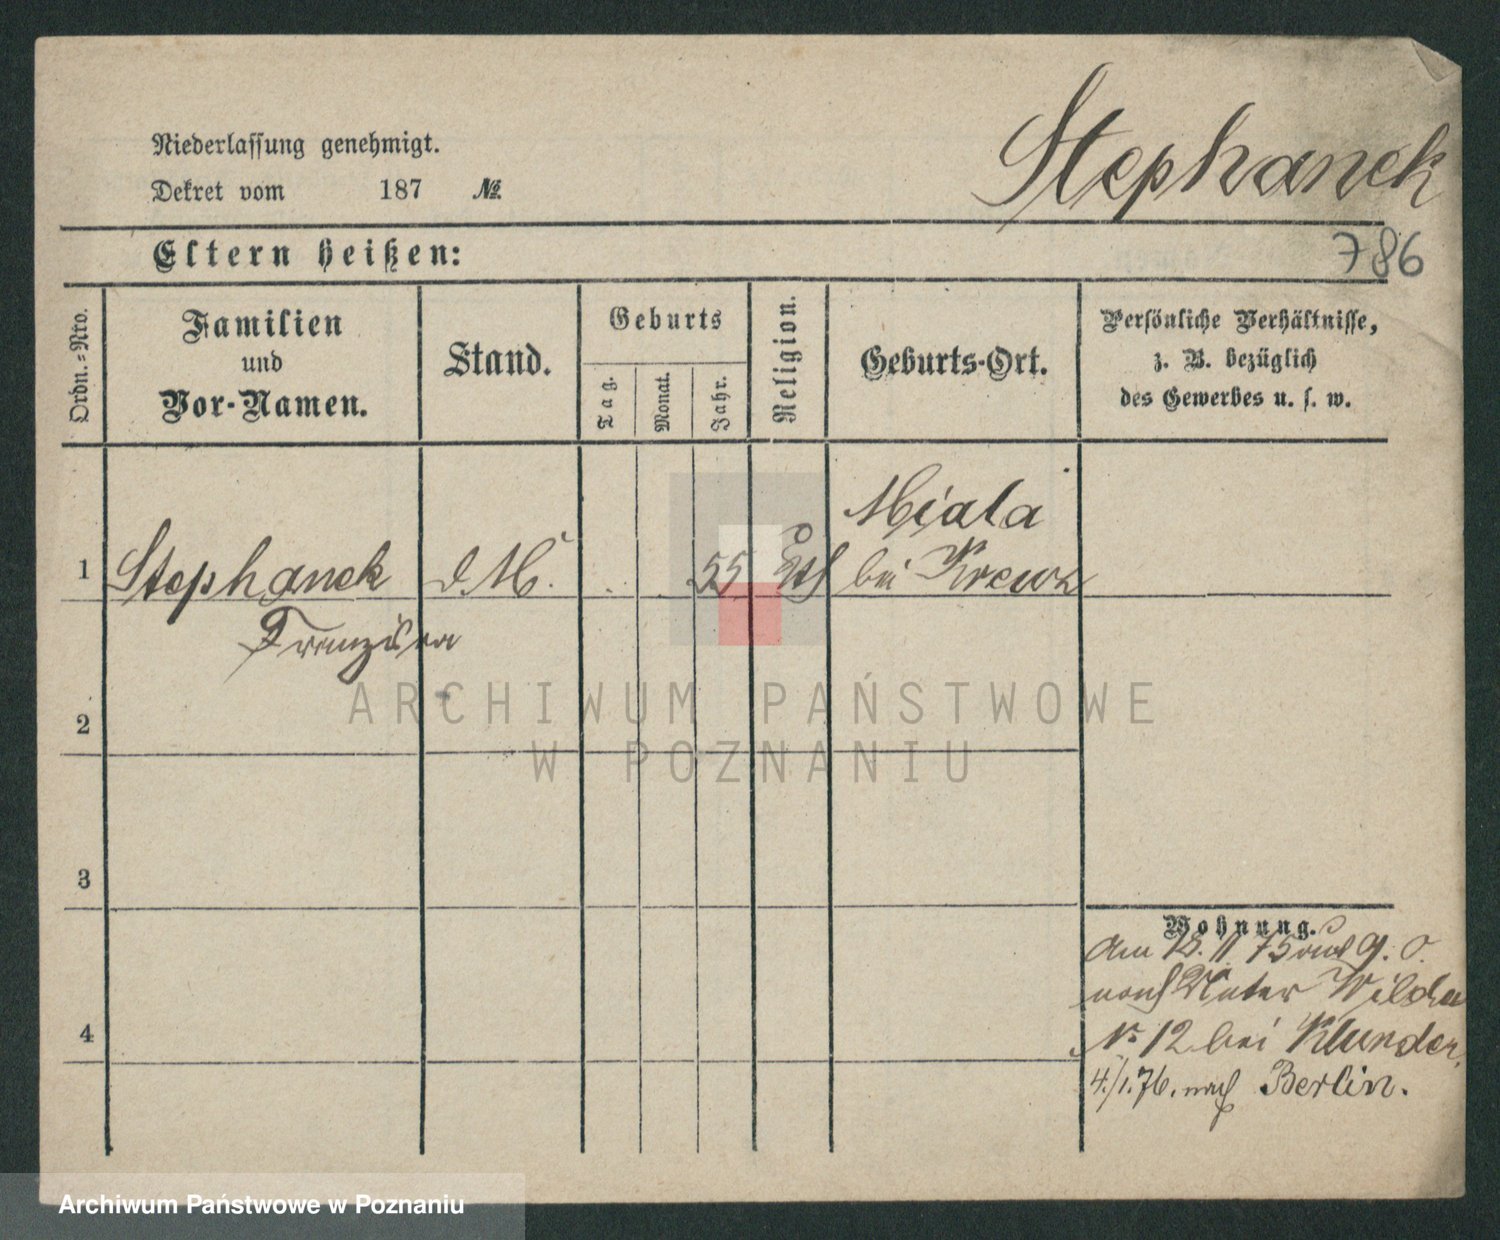 Stephanek
Niederlassung genehmigt.
Dekret vom 187 №
Eltern heißen:
786
Ordn.-Nro.
Familien
und
Vor-Namen.
Stand.
Geburts
Tag.
Monat.
Jahr.
Religion.
Geburts-Ort.
Persönliche Verhältnisse,
z. B. bezüglich
des Gewerbes u. s. w.
Miala
1 Stephanek d. M. 55 bei Kreuz
Franziska
2
3
4
Wohnung.
Am 18. 11 75
nach Unter Wilda
No 12 bei Klunder,
4./1.76. nach Berlin.
ARCHIWUM PAŃSTWOWE
W POZNANIU
Archiwum Państwowe w Poznaniu